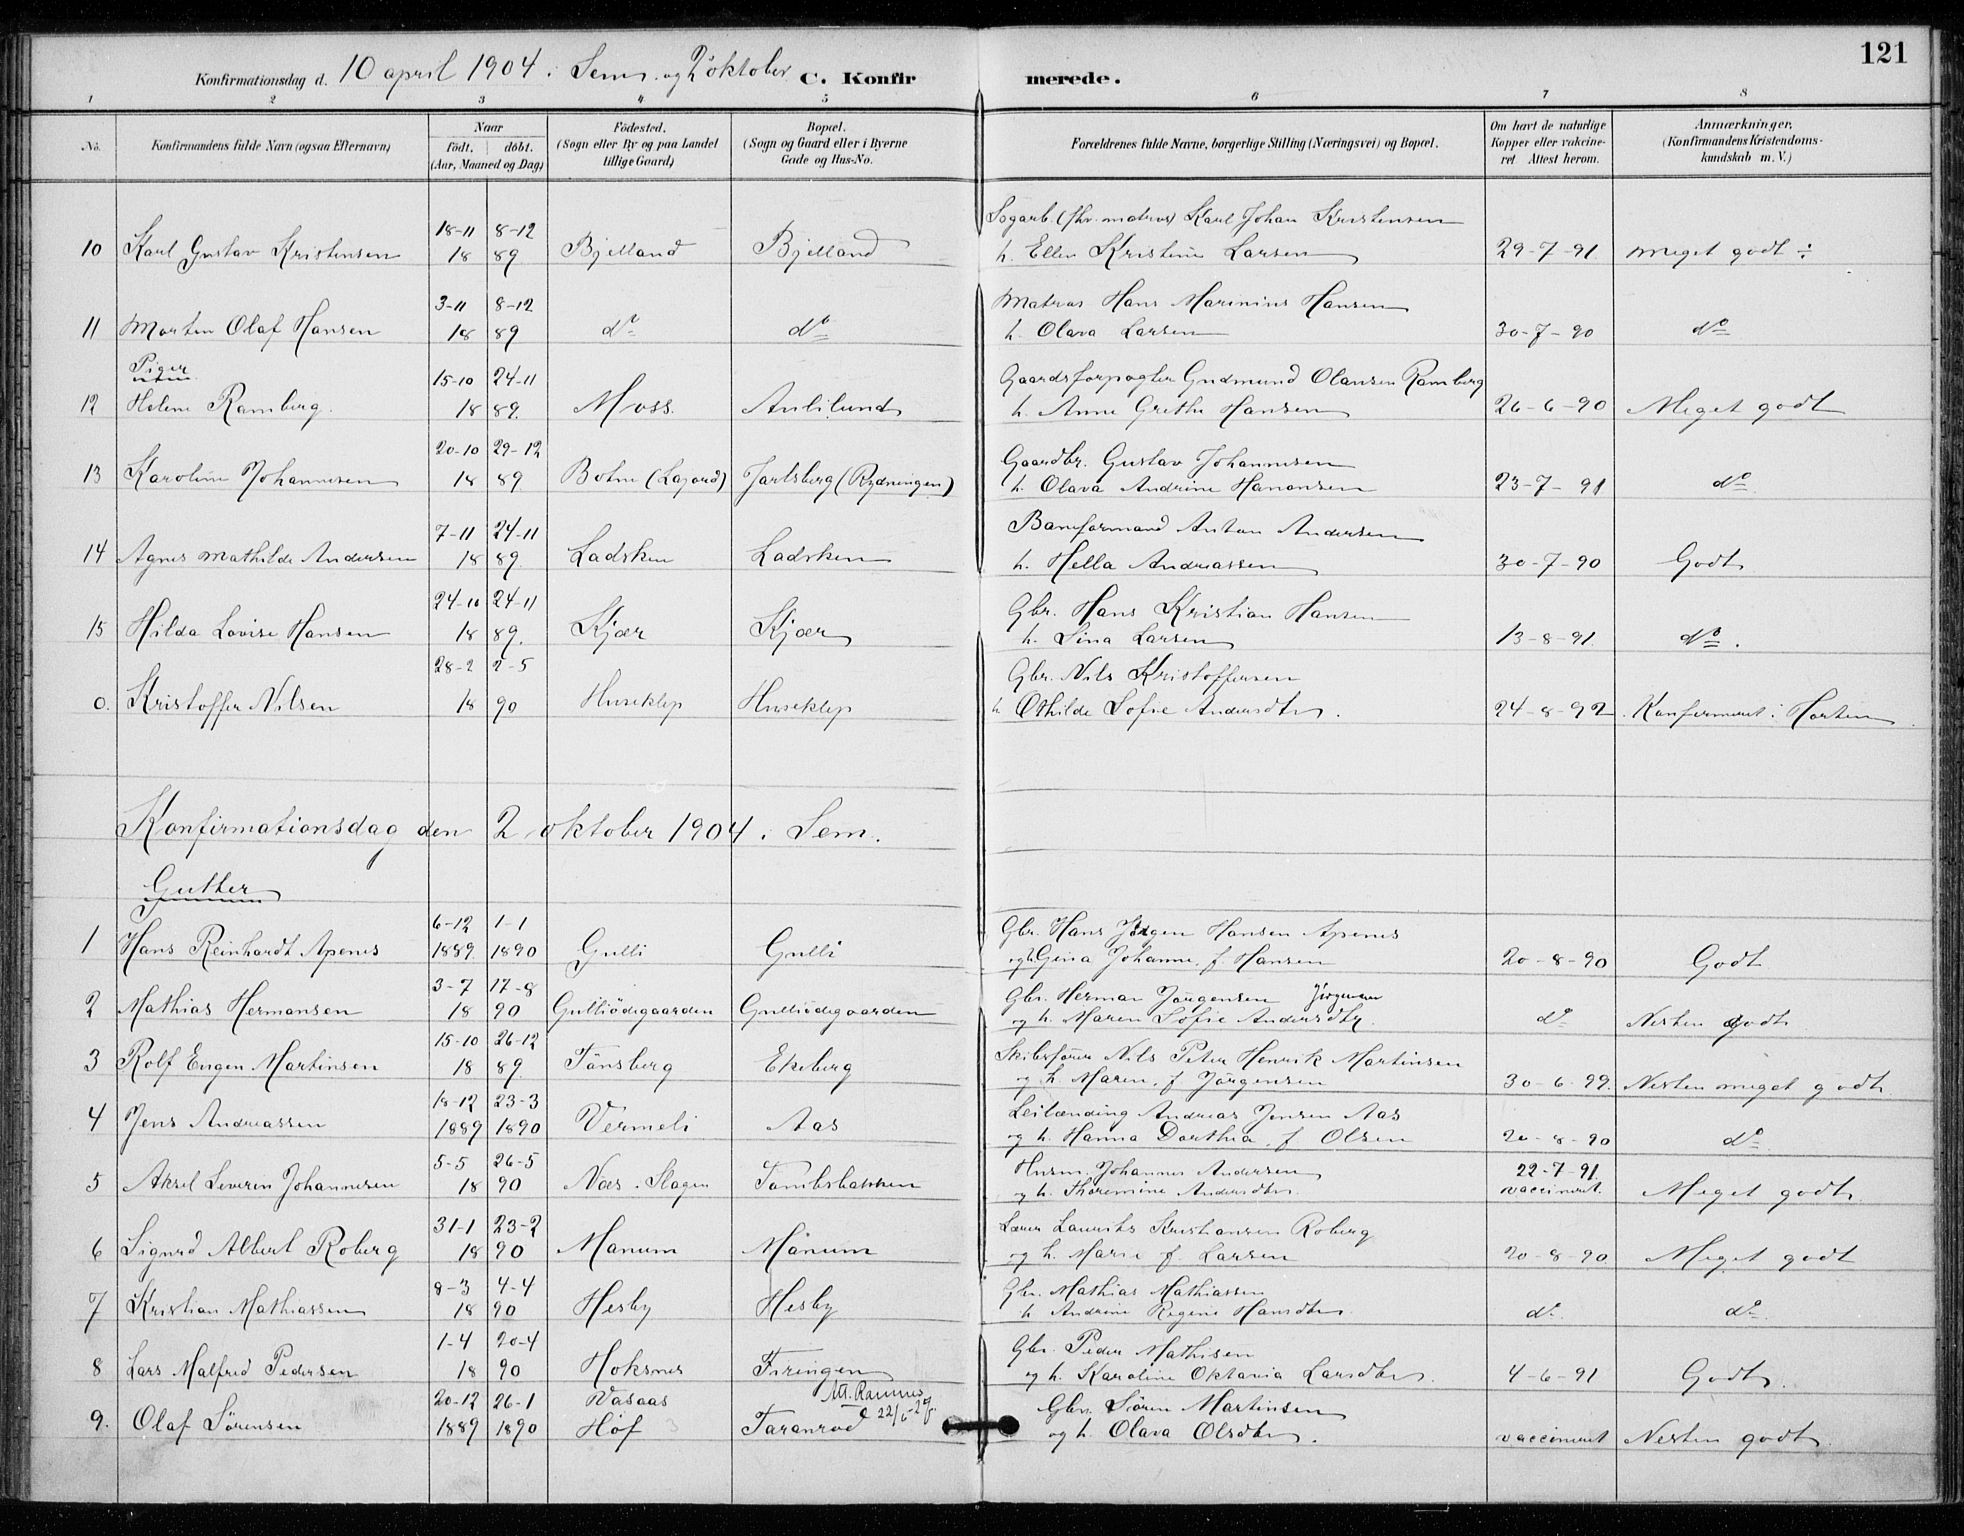 121
Konfirmationsdag d. 10 april 1904 i Sem og 2 oktober C. Konfirmerede.
1 2 3 4 5 6 7 8
No. Konfirmandens fulde Navn (ogsaa Efternavn) Naar født. døbt. (Aar, Maaned og Dag) Fødested. (Sogn eller By og paa Landet tillige Gaard) Bopæl. (Sogn og Gaard eller i Byerne Gade og Hus-No. Forældrenes fulde Navne, borgerlige Stilling (Næringsvei) og Bopæl. Om havt de naturlige Kopper eller vakcineret Attest herom. Anmærkninger. (Konfirmandens Kristendomskundskab m. V.)
18-11 8-12 Karl Johan Kristensen
10 Karl Gustav Kristensen 18 89 Bjelland Bjelland h. Ellen Kristine Larsen 29-7-91 Meget godt ÷
3-11 8-12 Matros Hans Marinius Hansen
11 Morten Olaf Hansen 18 89 do do h. Olava Larsen 30-7-90 do
Piger
15-10 24-11 Gaardsforpagter Gudmund Olausen Ramberg
12 Helene Ramberg. 18 89 Moss. Aulilund h. Anne Grethe Hansen 26-6-90 Meget godt
20-10 29-12 Gaardbr. Gustav Johannesen
13 Karoline Johannesen 18 89 Botne (Lagord) Jarlsberg (Rydningen) h. Olava Andrine 23-7-91 do
7-11 24-11 Baneformand Anton Andersen
14 Agnes Mathilde Andersen 18 89 Ladsken Ladsken h. Hella Andreassen 30-7-90 Godt
24-10 24-11 Gbr. Hans Kristian Hansen
15 Hilda Lovise Hansen 18 89. Kjær Kjær h. Sina Larsen 13-8-91. do.
28-2 2-5 Gbr. Nils Kristoffersen
0. Kristoffer Nilsen 18 90 Huseklep Huseklep h Othilde Sofie Andersdtr. 24-8-92. Konfirmeret i Horten
Konfirmationsdag den 2 oktober 1904 i Sem.
Gutter
6-12 1-1 Gbr. Hans Jørgen Hansen Apenes
1 Hans Reinhardt Apenes 1889 1890 Gulli Gulli og h Gina Johanne f. Hansen 20-8-90 Godt
3-7 17-8 Gbr. Herman Jørgensen Jörgensen
2 Mathias Hermansen 18 90 Gulliödegaarden Gulliödegaarden og h. Maren Sofie Andersdtr. do Nesten godt
15-10 26-12 Skibsfører Nils Peter Henrik Martinsen
3 Rolf Eugen Martinsen 18 89 Tönsberg Ekeberg og h. Maren, f Jørgensen 30-6-99. Nesten meget godt
18-12 23-3 Leilænding Andreas Jensen Aas
4 Jens Andreassen 1889 1890 Vermeli Aas og h. Hanna Dorthea, f Olsen 20-8-90 do
5-5 26-5 Husm. Johannes Andersen 22-7-91
5 Aksel Severin Johannesen 18 90 Næs i Slagen Tambsbakken og h. Thoremine Andersdtr. vaccineret. Meget godt
31-1 23-2 Lærer Laurits Kristiansen Roberg
6 Sigurd Albert Roberg 18 90 Manum Månum og h. Marie f. Larsen 20-8-90 Meget godt
8-3 4-4 Gbr. Mathias Mathiassen
7 Kristian Mathiassen 18 90 Hesby Hesby h Andrine Regine Hansdtr. do do
1-4 20-4 Gbr. Peder Mathisen
8 Lars Malfred Pedersen 18 90 Hoksnes Firingen og h. Karoline Oktavia Larsdtr. 4-6-91 Godt.
20-12 26-1 Vasaas Utt. Ramnes 22/6-27. Gbr. Sören Martinsen
9. Olaf Sørensen 1889 1890 Hof Taranrød og h. Olava Olsdtr. vaccineret Nesten godt